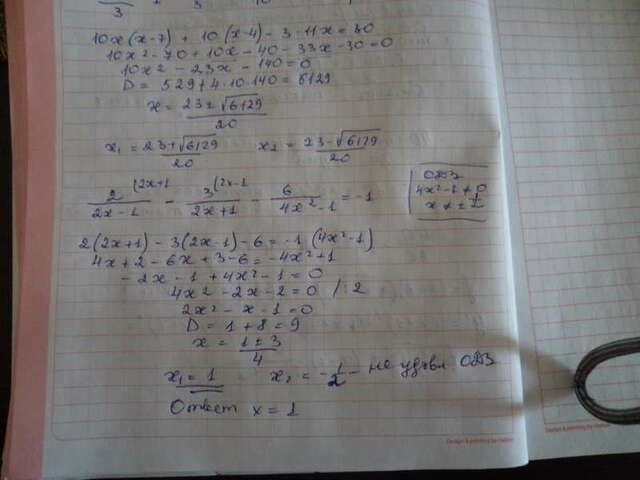 10x(x-7) + 10(x-4) - 3·11x = 30
10x² - 70 + 10x - 40 - 33x - 30 = 0
10x² - 23x - 140 = 0
D = 529 + 4·10·140 = 6129
x = (23 ± √6129)/20
x₁ = (23+√6129)/20 x₂ = (23-√6129)/20
2/(2x-1) (2x+1 - 3/(2x+1) (2x-1 - 6/(4x²-1) = -1
ОДЗ
4x²-1 ≠ 0
x ≠ ± 1/2
2(2x+1) - 3(2x-1) - 6 = -1 (4x²-1)
4x + 2 - 6x + 3 - 6 = -4x² + 1
-2x - 1 + 4x² - 1 = 0
4x² - 2x - 2 = 0 /:2
2x² - x - 1 = 0
D = 1 + 8 = 9
x = (1 ± 3)/4
x₁ = 1 x₂ = -1/2 - не удовл. ОДЗ
Ответ x = 1